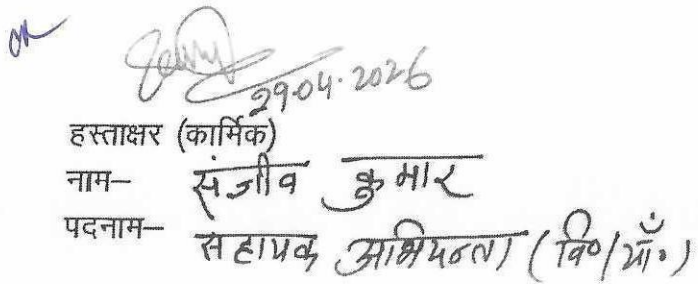 29.04.2026
हस्ताक्षर (कार्मिक)
नाम– संजीव कुमार
पदनाम– सहायक अभियन्ता (वि०/याँ०)